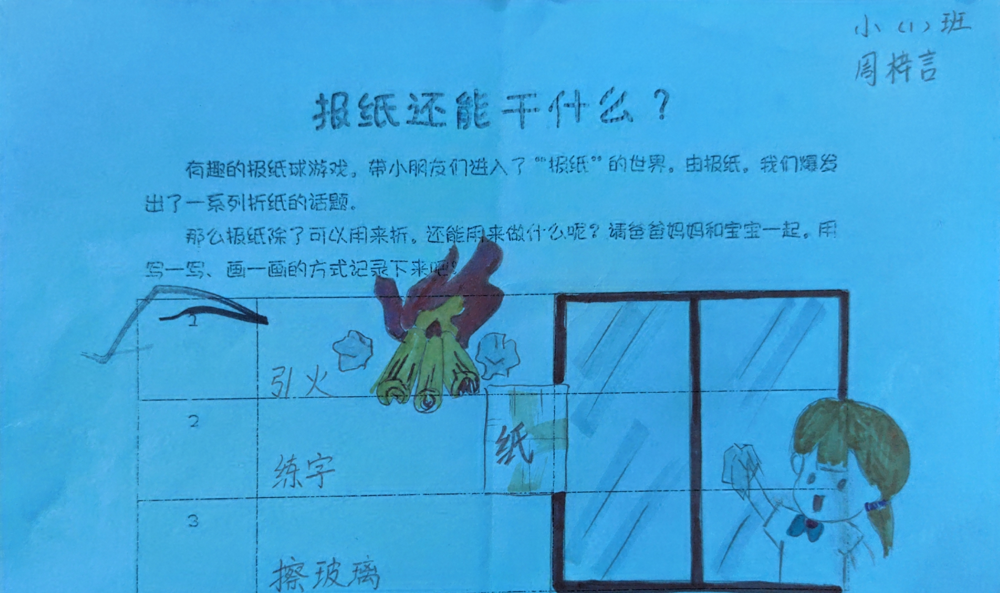 小(1)班
周梓言
报纸还能干什么？
有趣的报纸球游戏，带小朋友们进入了“报纸”的世界。由报纸，我们爆发
出了一系列折纸的话题。
那么报纸除了可以用来折，还能用来做什么呢？请爸爸妈妈和宝宝一起，用
写一写、画一画的方式记录下来吧。
1
引火
2
练字
纸
3
擦玻璃